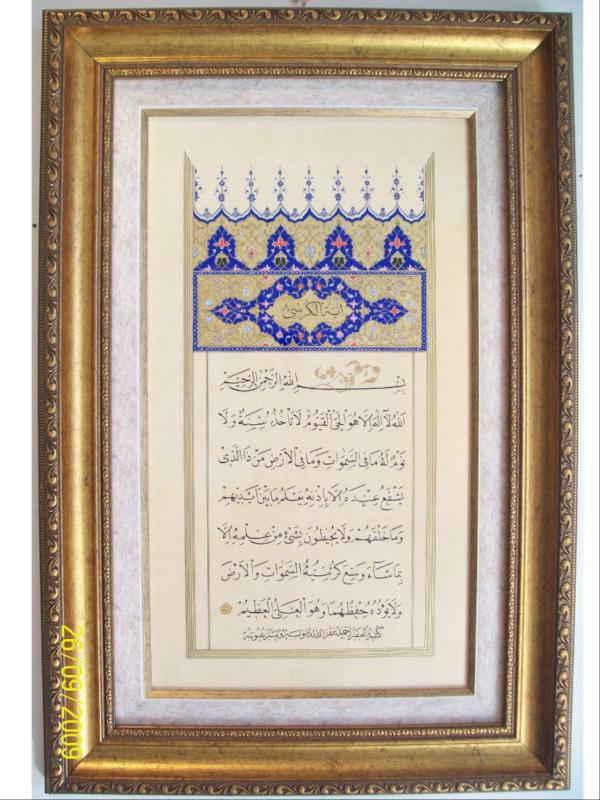 آية الكرسي
بسم الله الرحمن الرحيم
الله لا إله إلا هو الحي القيوم لا تأخذه سنة ولا
نوم له ما في السموات وما في الأرض من ذا الذي
يشفع عنده إلا بإذنه يعلم ما بين أيديهم
وما خلفهم ولا يحيطون بشيء من علمه إلا
بما شاء وسع كرسيه السموات والأرض
ولا يؤده حفظهما وهو العلي العظيم
كتبه الفقير أحمد غفر الله ذنوبه وستر عيوبه
26/09/2009